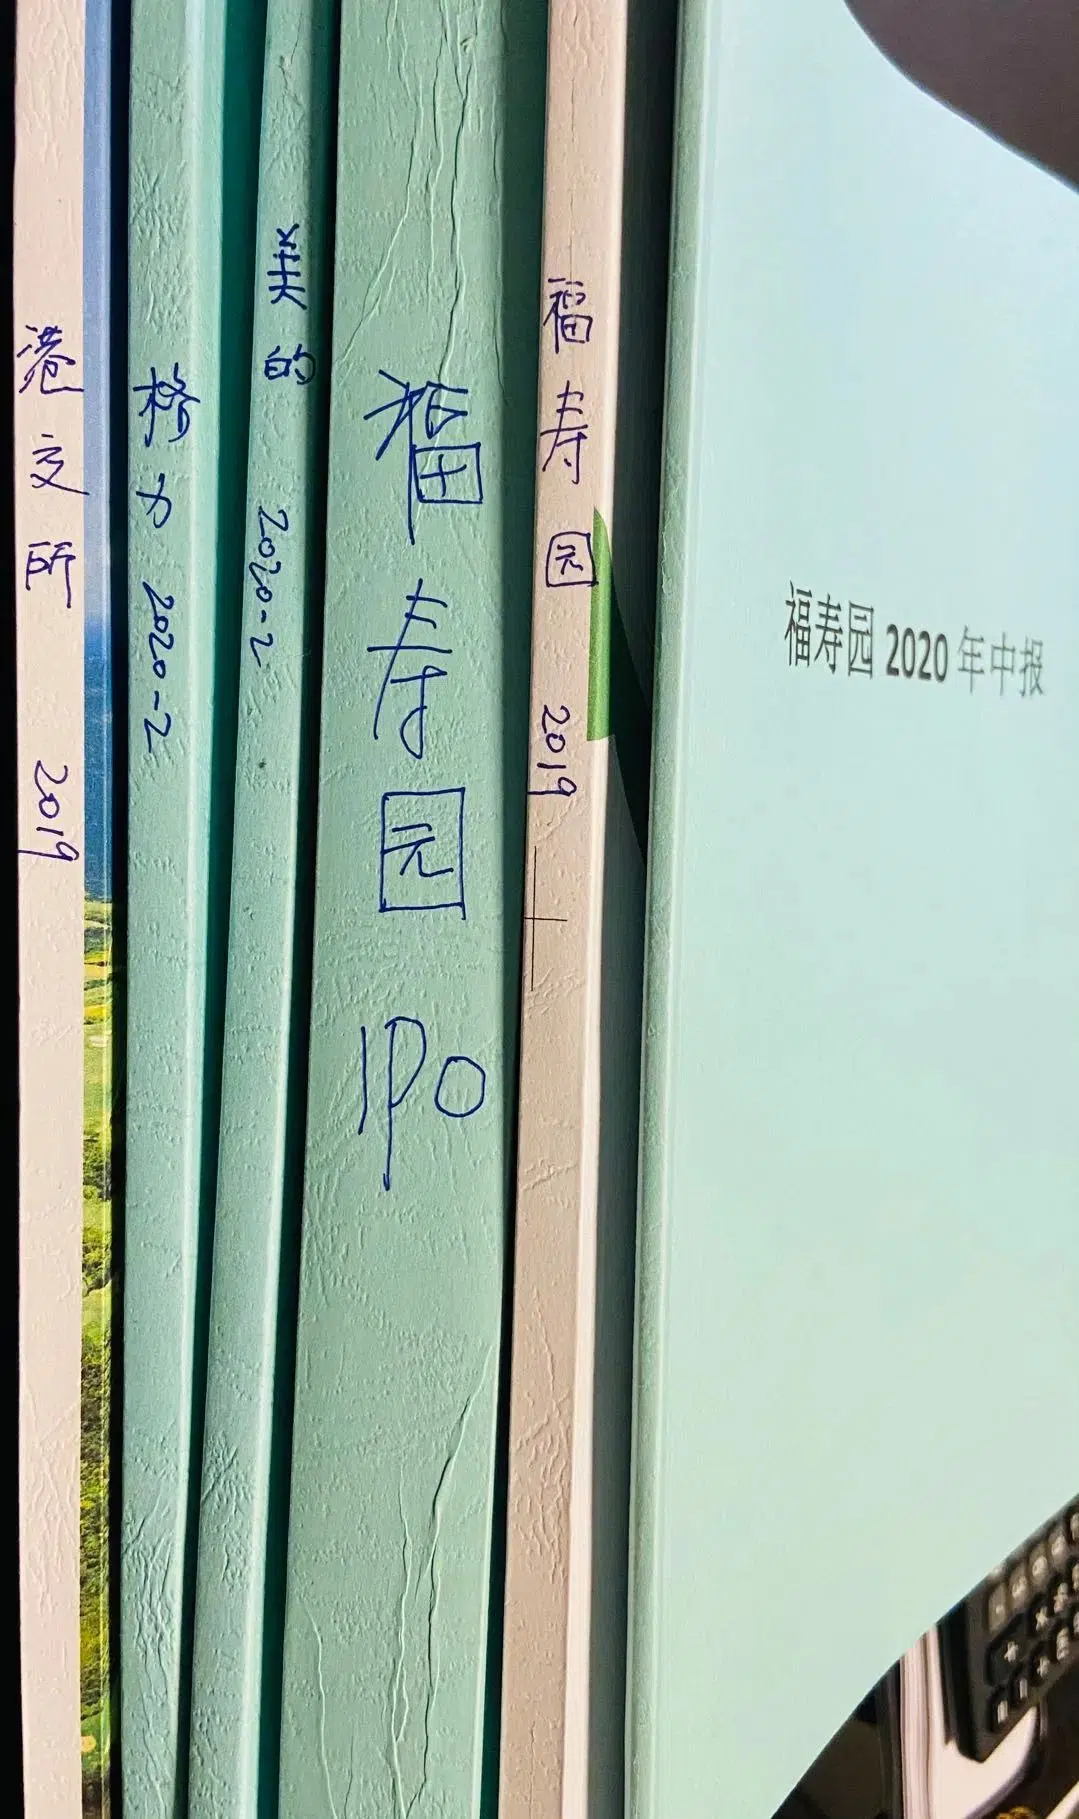 港交所 2019
格力 2020-2
美的 2020-2
福寿园 IPO
福寿园 2019
福寿园 2020 年中报